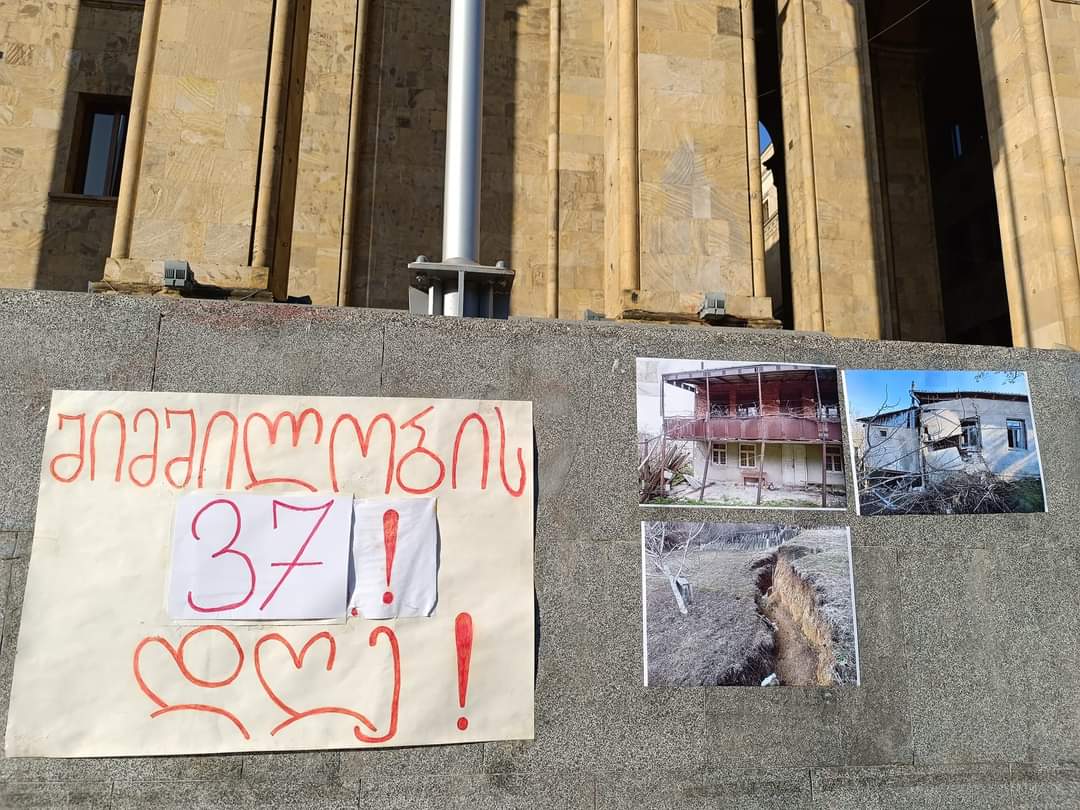 შიმშილობის
37!
დღე!